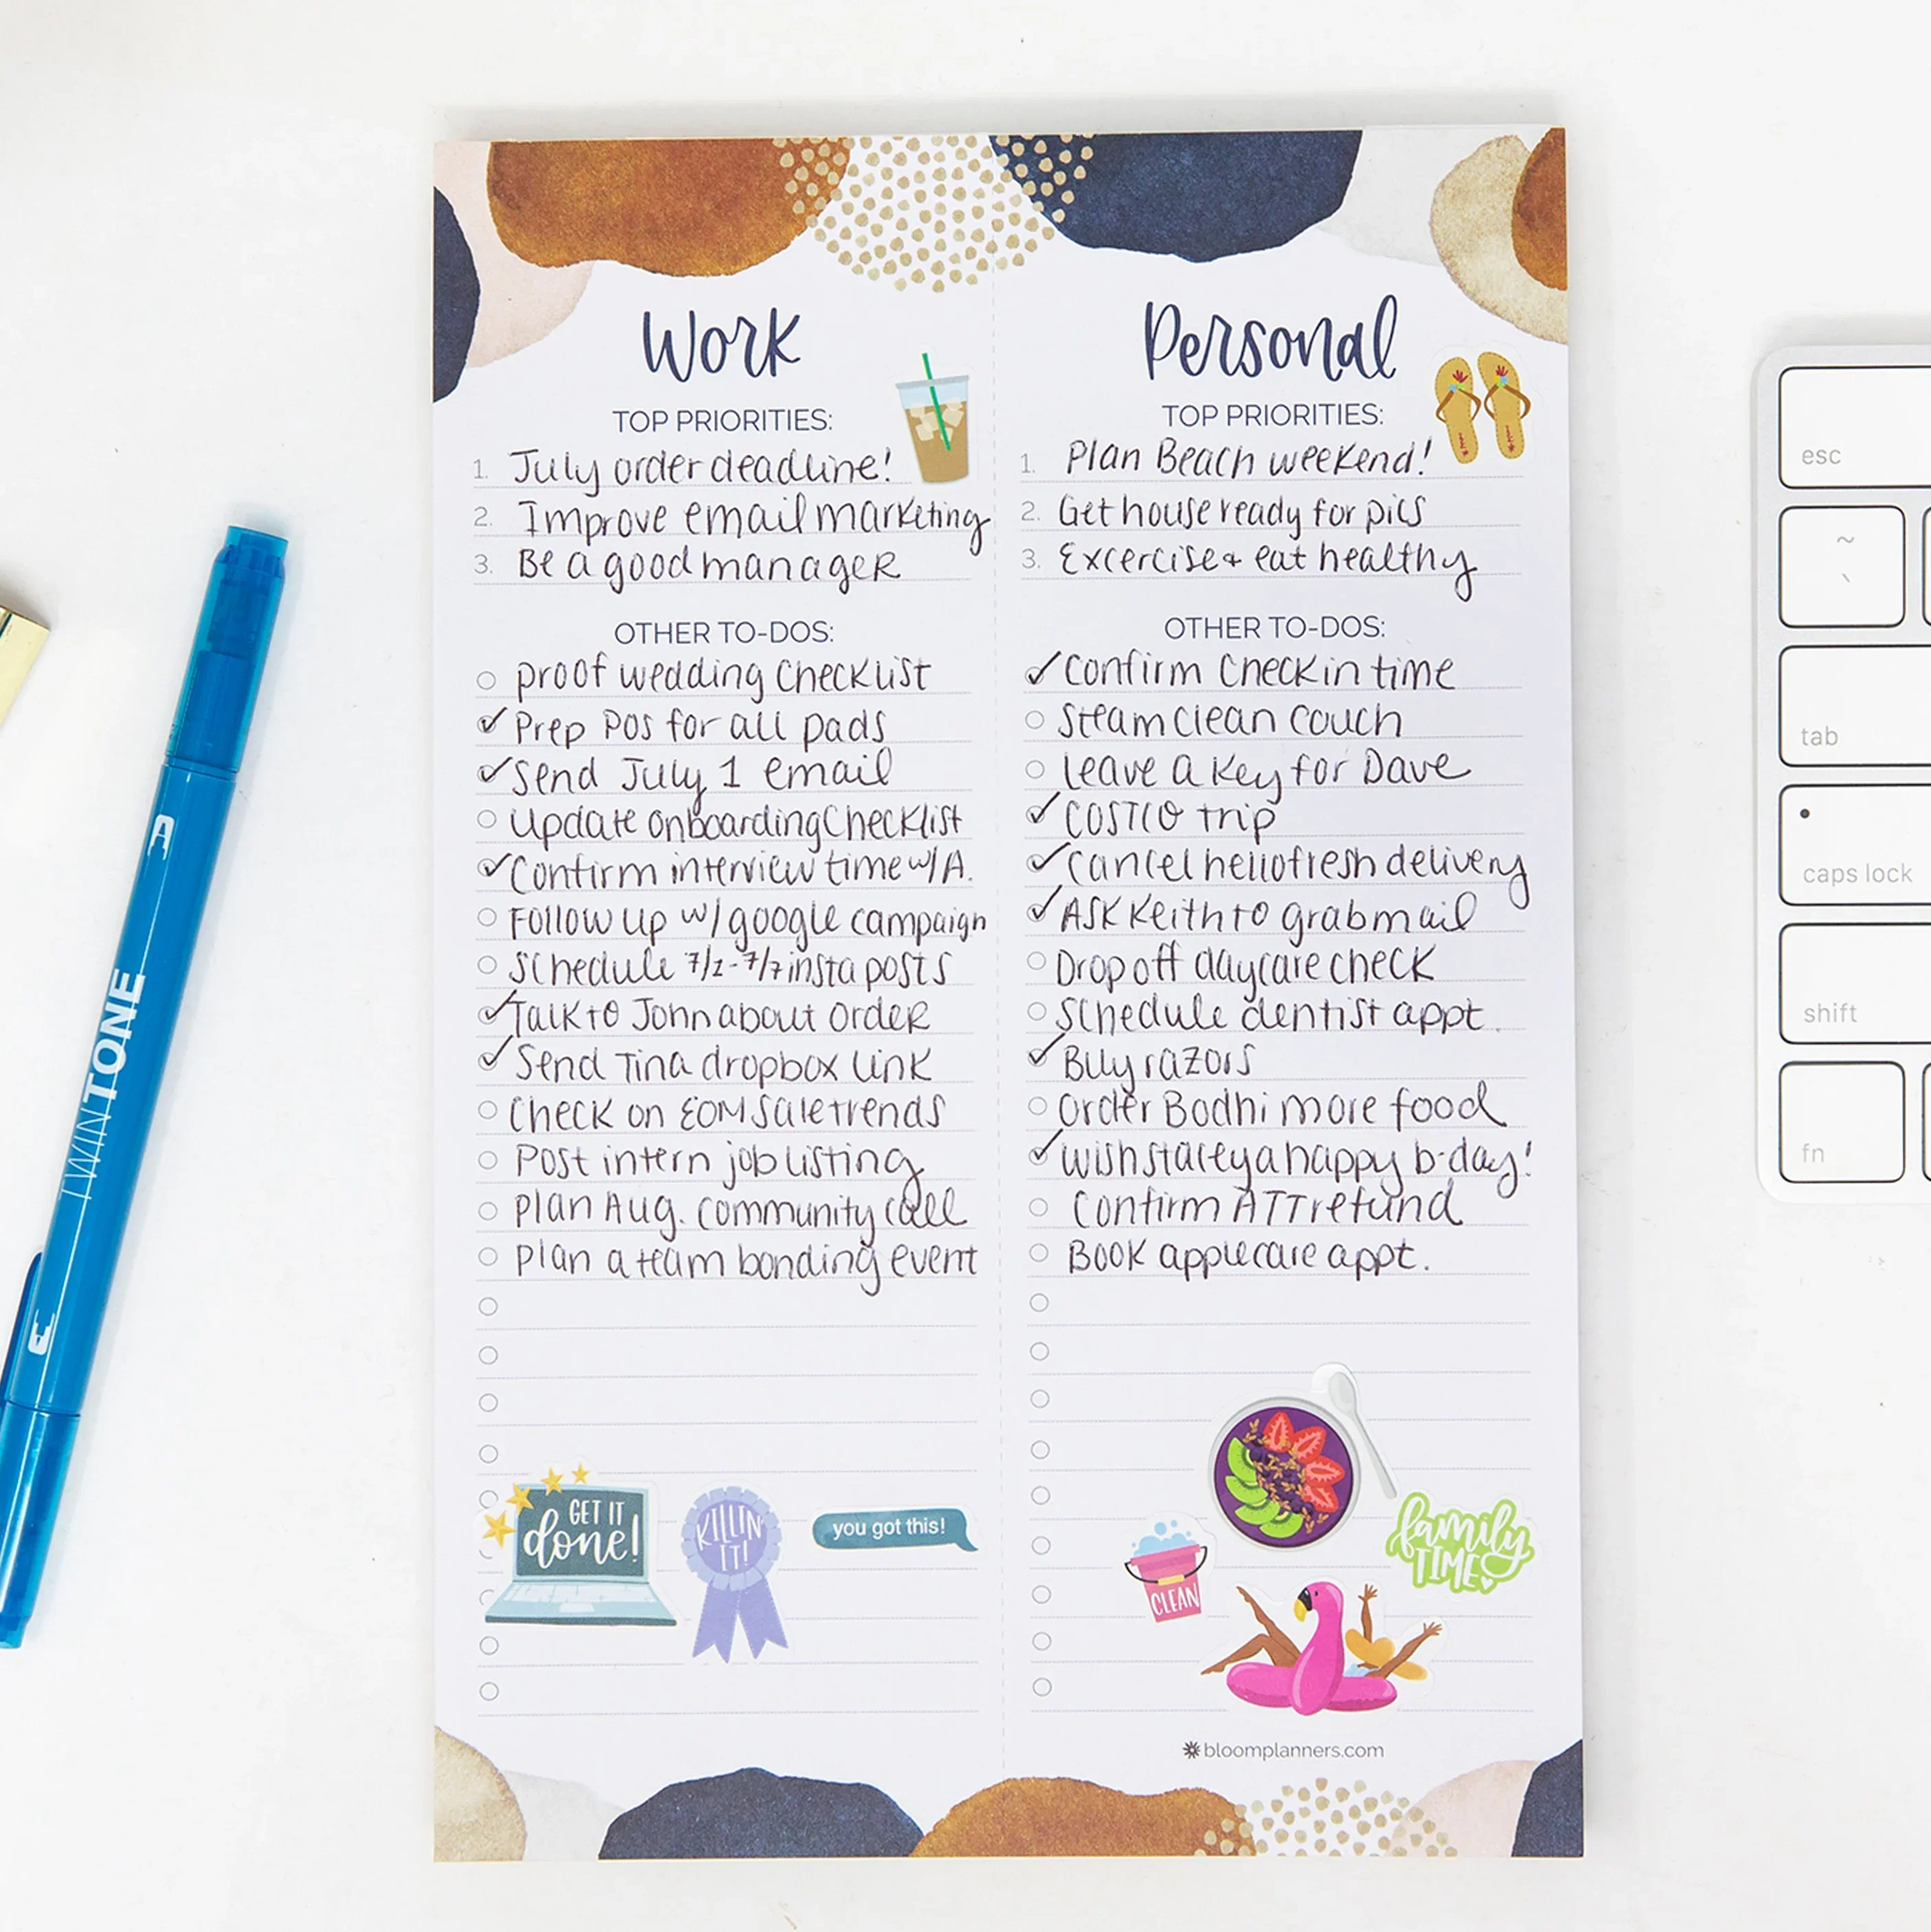 Work
TOP PRIORITIES:
1. July order deadline!
2. Improve email marketing
3. Be a good manager
OTHER TO-DOS:
proof wedding checklist
✓ Prep POs for all pads
✓ Send July 1 email
update onboarding checklist
✓ Confirm interview time w/A.
Follow up w/google campaign
Schedule 7/1-7/7 insta posts
✓ Talk to John about order
✓ Send Tina dropbox link
Check on EOM sale trends
Post intern job listing
Plan Aug. community call
Plan a team bonding event
GET IT
done!
KILLIN'
IT!
you got this!
Personal
TOP PRIORITIES:
1. Plan Beach weekend!
2. Get house ready for pics
3. Excercise + eat healthy
OTHER TO-DOS:
✓ Confirm Check in time
Steam clean couch
leave a key for Dave
✓ COSTCO trip
✓ Cancel hellofresh delivery
✓ Ask Keith to grab mail
Drop off daycare check
Schedule dentist appt.
✓ Buy razors
Order Bodhi more food
✓ wish stacey a happy b-day!
Confirm ATT refund
Book applecare appt.
family
TIME
CLEAN
bloomplanners.com
TWINTONE
esc
~
`
tab
caps lock
shift
fn